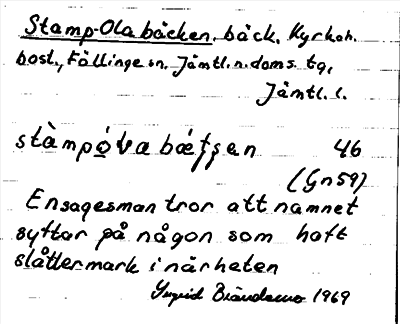 Stamp-Ola bäcken, bäck, Kyrkoh.
bost., Fällinge sn. Jämtl. n. doms. tg,
Jämtl. l.
stàmpo̱̍va bæ̍tʃen 46
(Gn59)
En sagesman tror att namnet
syftar på någon som haft
slåttermark i närheten
Ingrid 1969